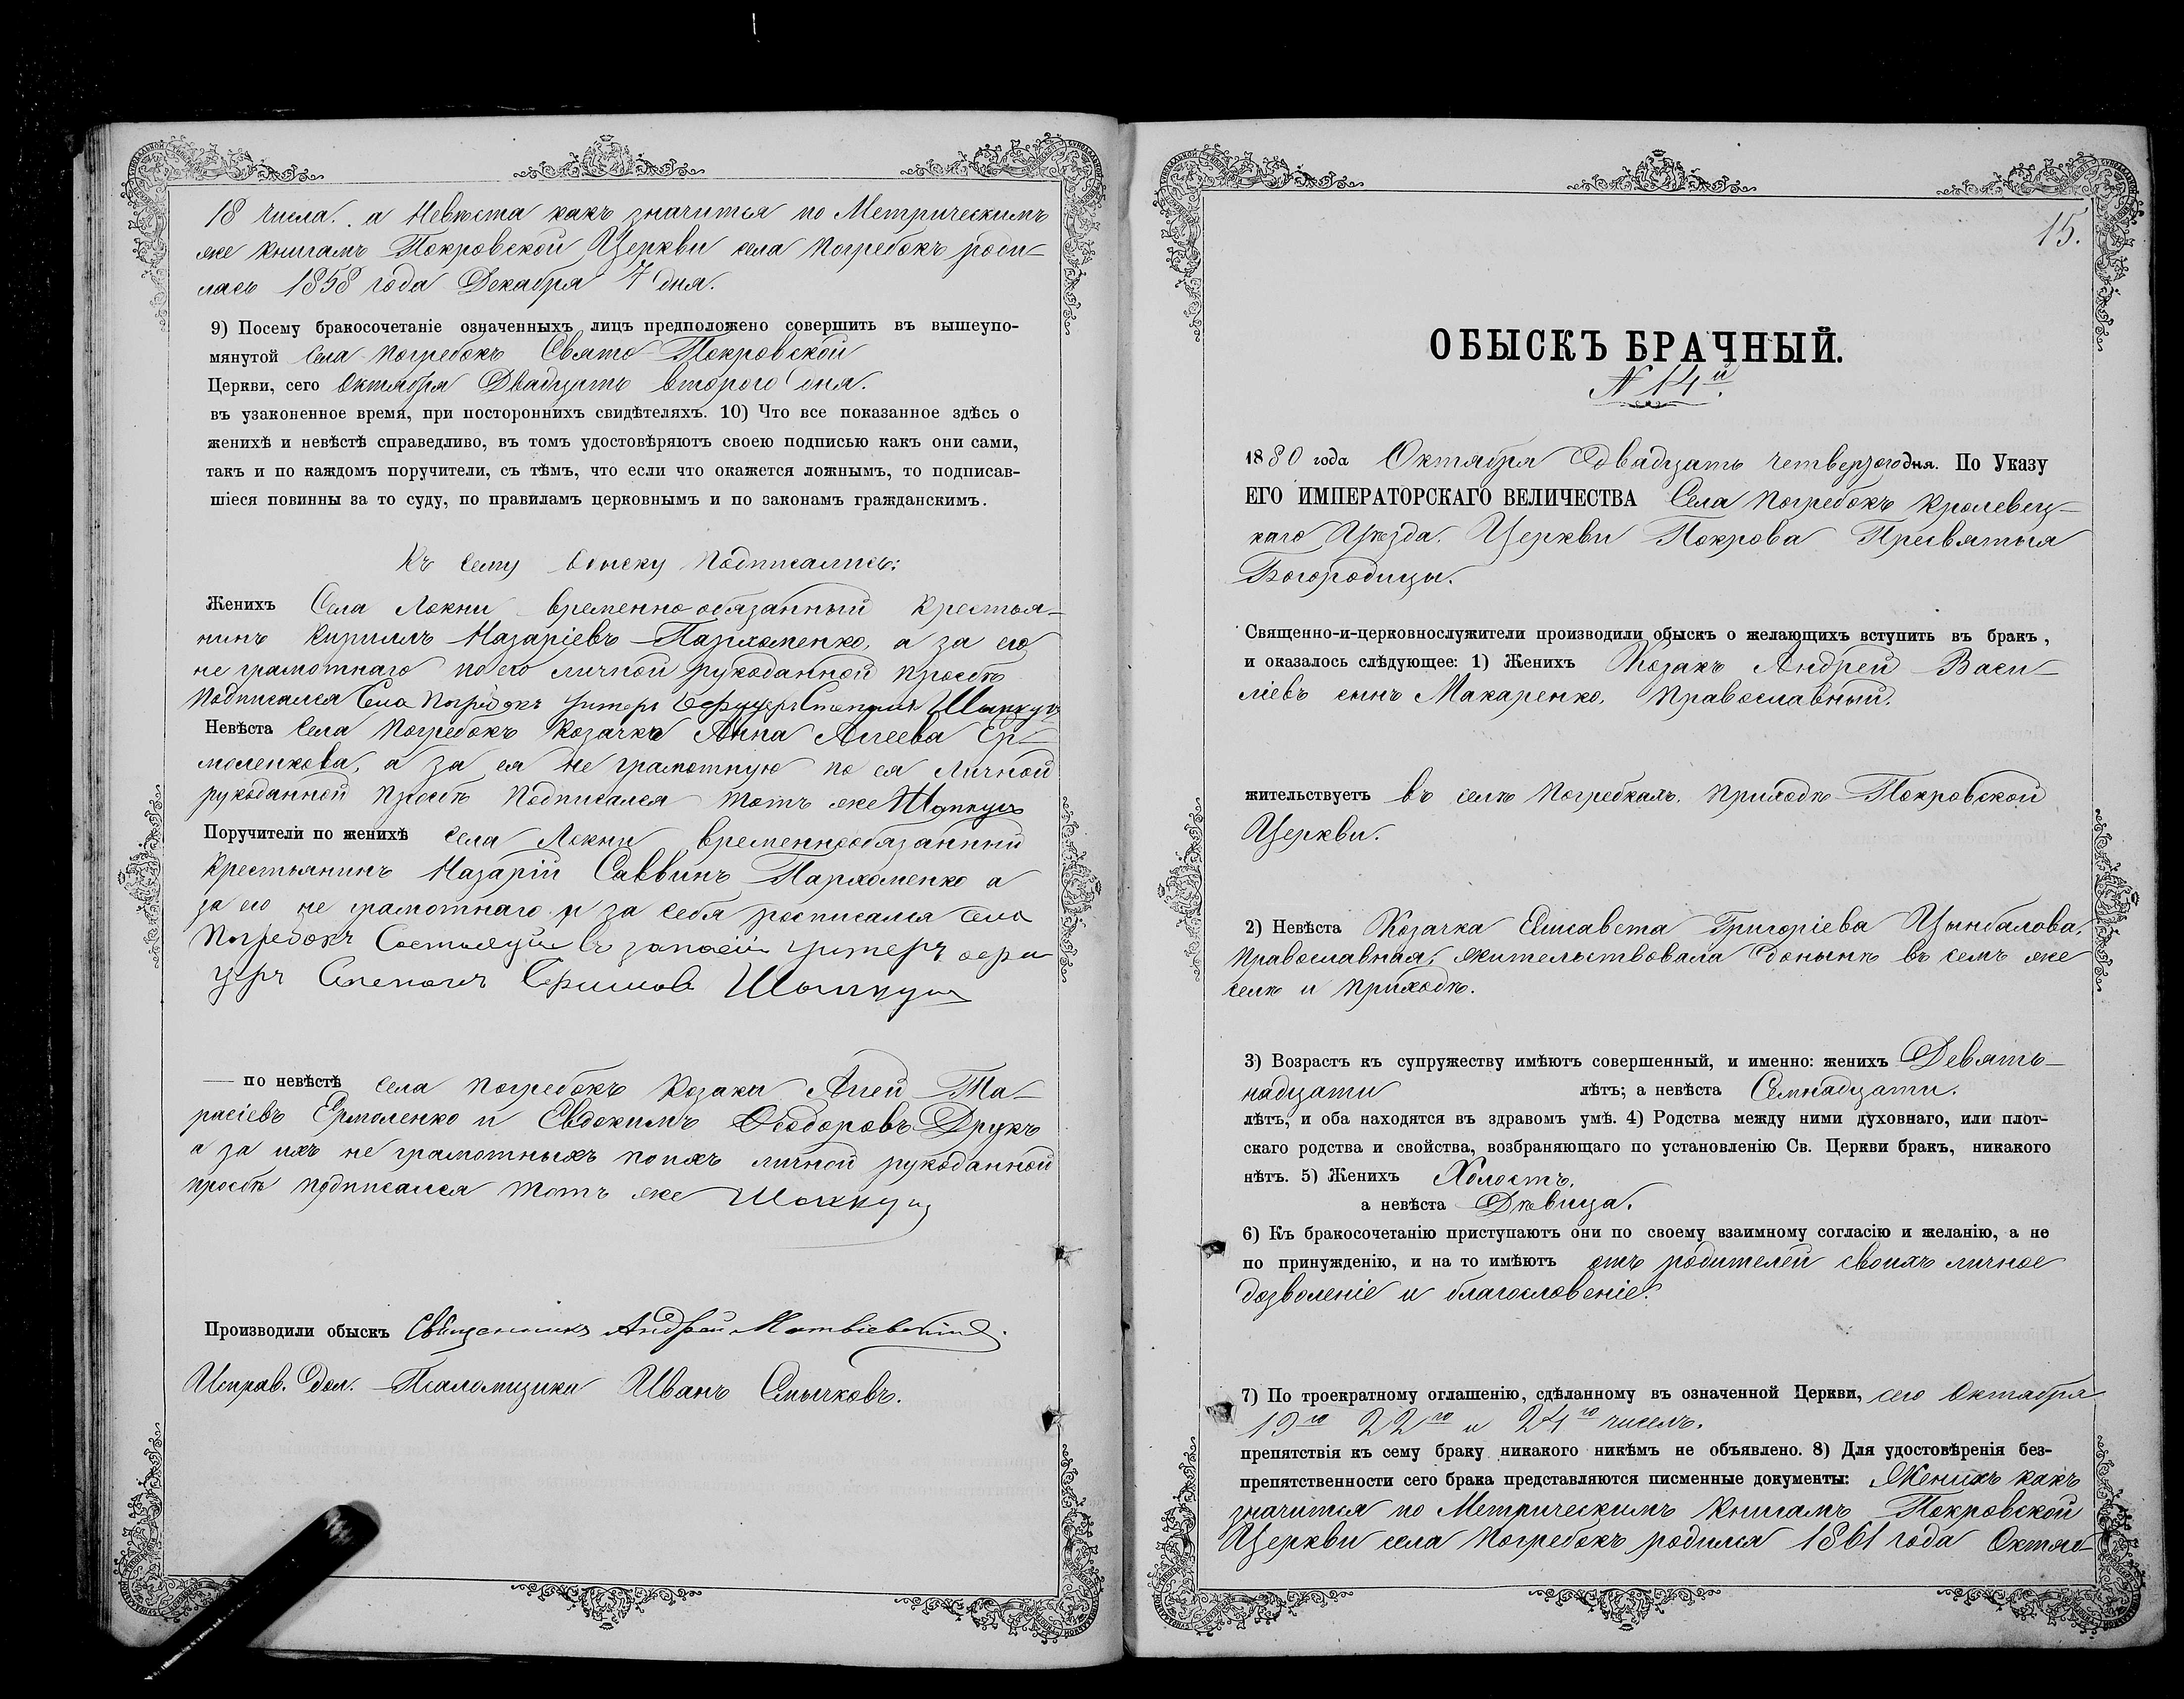 18 числа. а Невѣста какъ значится по Метрическимъ
же книгамъ Покровской Церкви села Погребокъ роди-
лась 1858 года Декабря 7 дня.
9) Посему бракосочетаніе означенныхъ лицъ предположено совершить въ вышеупо-
мянутой села Погребокъ Свято-Покровской
Церкви, сего Октября Двадцать второго дня.
въ узаконенное время, при постороннихъ свидѣтеляхъ. 10) Что все показанное здѣсь о
женихѣ и невѣстѣ справедливо, въ томъ удостовѣряютъ своею подписью какъ они сами,
такъ и по каждомъ поручители, съ тѣмъ, что если что окажется ложнымъ, то подписав-
шіеся повинны за то суду, по правиламъ церковнымъ и по законамъ гражданскимъ.
Къ сему обыску подписались:
Женихъ Села Локни временно обязанный крестья-
нинъ Кириллъ Назаріевъ Пархоменко, а за его
не грамотнаго по его личной рукоданной просьбѣ
подписался Села Погребокъ унтеръ Степанъ
Невѣста Села Погребокъ козачка Анна Агеева Ер-
моленкова, а за ея не грамотную по ея личной
рукоданной просьбѣ подписался тотъ же
Поручители по женихѣ села Локни временнообязанный
крестьянинъ Назарій Саввинъ Пархоменко а
за его не грамотнаго и за себя росписался села
Погребокъ въ запасѣ унтеръ офи
церъ Степанъ Ефимовъ
— по невѣстѣ села Погребокъ козаки Агей Та-
расіевъ Ермоленко и Евдокимъ Ѳеодоровъ Друкъ
а за ихъ не грамотныхъ по ихъ личной рукоданной
просьбѣ подписался тотъ же
Производили обыскъ Священникъ Андрей Матвіевскій.
Исправ. дол. Псаломщика Иванъ Смычковъ.
15.
ОБЫСКЪ БРАЧНЫЙ.
N 14й.
1880 года Октября двадцать четвертого дня. По Указу
ЕГО ИМПЕРАТОРСКАГО ВЕЛИЧЕСТВА Села Погребокъ Кролевец-
каго Уѣзда. Церкви Покрова Пресвятыя
Богородицы.
Священно-и-церковнослужители производили обыскъ о желающихъ вступить въ бракъ,
и оказалось слѣдующее: 1) Женихъ Козакъ Андрей Васи-
ліевъ сынъ Макаренко, Православный.
жительствуетъ въ селѣ Погребкахъ. приходѣ Покровской
Церкви.
2) Невѣста Козачка Елисавета Григоріева Цымбалова,
Православная, жительствовала донынѣ въ семъ же
селѣ и приходѣ.
3) Возрастъ къ супружеству имѣютъ совершенный, и именно: женихъ Девять-
надцати лѣтъ; а невѣста Семнадцати.
лѣтъ, и оба находятся въ здравомъ умѣ. 4) Родства между ними духовнаго, или плот-
скаго родства и свойства, возбраняющаго по установленію Св. Церкви бракъ, никакого
нѣтъ. 5) Женихъ Холостъ.
а невѣста Дѣвица.
6) Къ бракосочетанію приступаютъ они по своему взаимному согласію и желанію, а не
по принужденію, и на то имѣютъ отъ родителей своихъ личное
дозволеніе и благословеніе.
7) По троекратному оглашенію, сдѣланному въ означенной Церкви, сего Октября
19го 22го и 24го чиселъ.
препятствія къ сему браку никакого никѣмъ не объявлено. 8) Для удостовѣренія без-
препятственности сего брака представляются писменные документы: Женихъ какъ
значится по Метрическимъ книгамъ Покровской
Церкви села Погребокъ родился 1861 года Октяб-